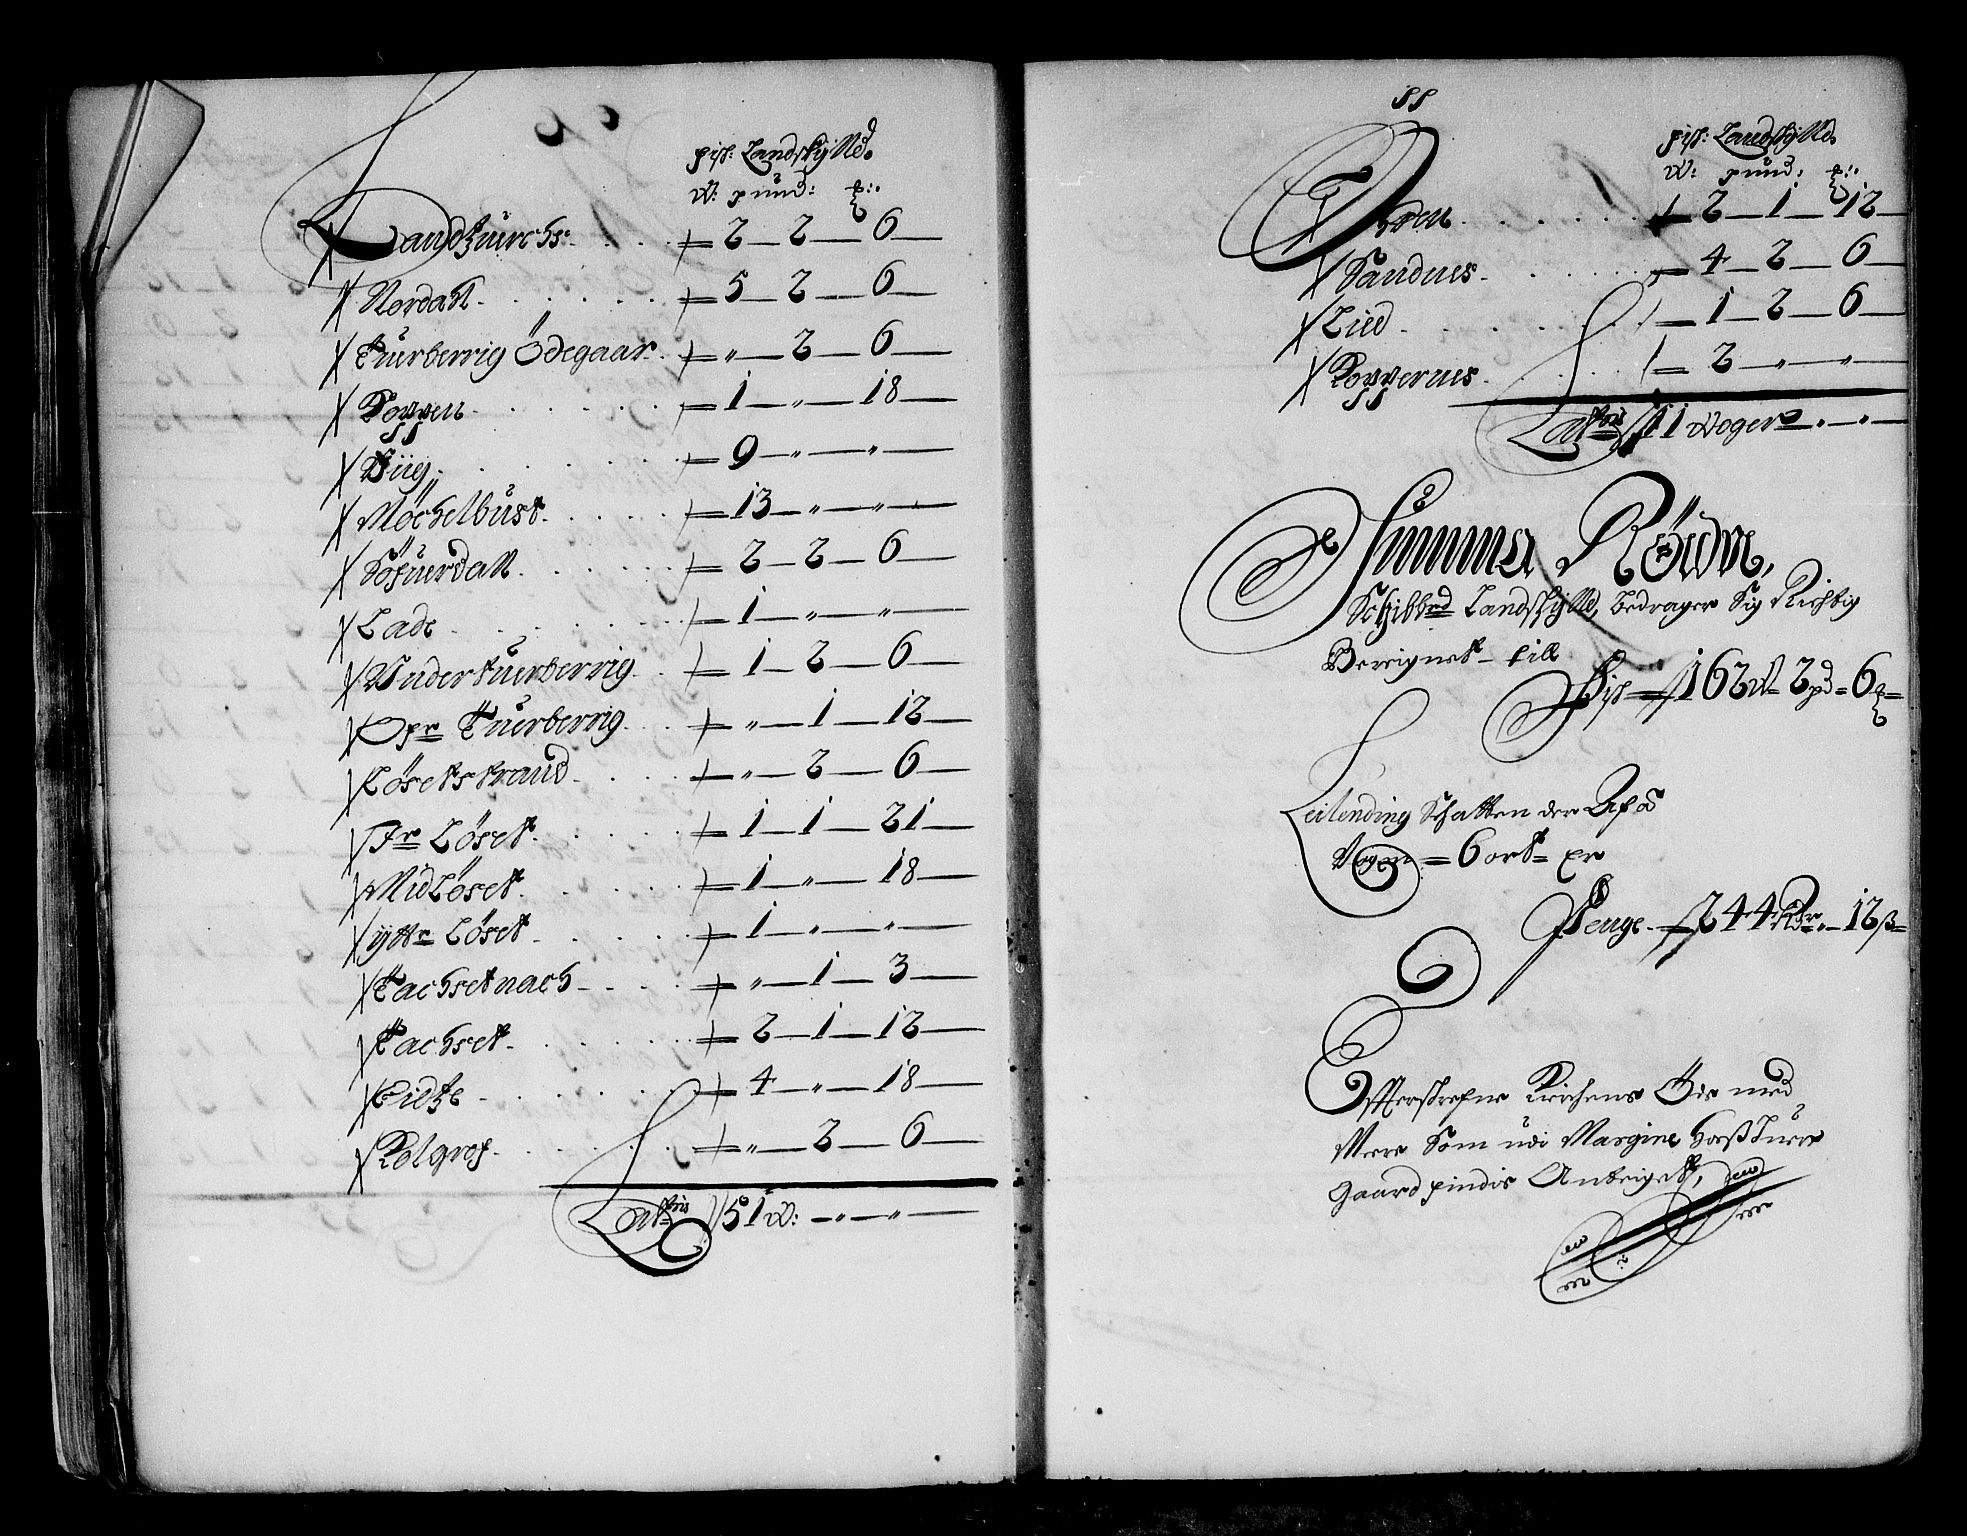 fisk: Landskÿlld.
W: pund: ℔:
Landkuirchs. = 2 — 2 — 6 —
Nordall. = 5 — 2 — 6 —
Tuerberrig Ödegaar. = „ — 2 — 6 —
Koppen. = 1 — „ — 18 —
Viig. = 9 — „ — „ —
Möchelbust. = 13 — „ — „ —
Söfuerdall. = 2 — 2 — 6 —
Lade. = 1 — „ — „ —
Vnder tuerberrig. = 1 — 2 — 6 —
Ofr Tuerberrig. = „ — 1 — 12 —
Lösetstrand. = „ — 2 — 6 —
Jr Löset. = 1 — 1 — 21 —
Midlöset. = 1 — „ — 18 —
ÿttr Löset. = 1 — „ — „ —
Tachsetnach. = „ — 1 — 3 —
Tachset. = 2 — 1 — 12 —
Eidke. = 4 — „ — 18 —
Kolgrof. = „ — 2 — 6 —
Latris 51 W: — „ — „ —
fisk: Landskÿlld.
W: pund: ℔:
= 2 — 1 — 12 —
Sandnes. = 4 — 2 — 6 —
Lied. = 1 — 2 — 6 —
Koppernes. = 2 — „ — „
Latris 11 Woger — „ — „ —
Summa Röidn,
Schibbrd Landskÿlld, bedrager Sig Richtig
Bereignet till
Fisk = 162 W = 2 pd = 6 ℔ =
Leilending Schatten der Af â
Wogen = 6 ort = er
Penge = 244 Rdr „ 12 ß =
Effterskrefne Kirchens Öde med
Meere Som udi Margine hoss huer
Gaard findis Anteignet,